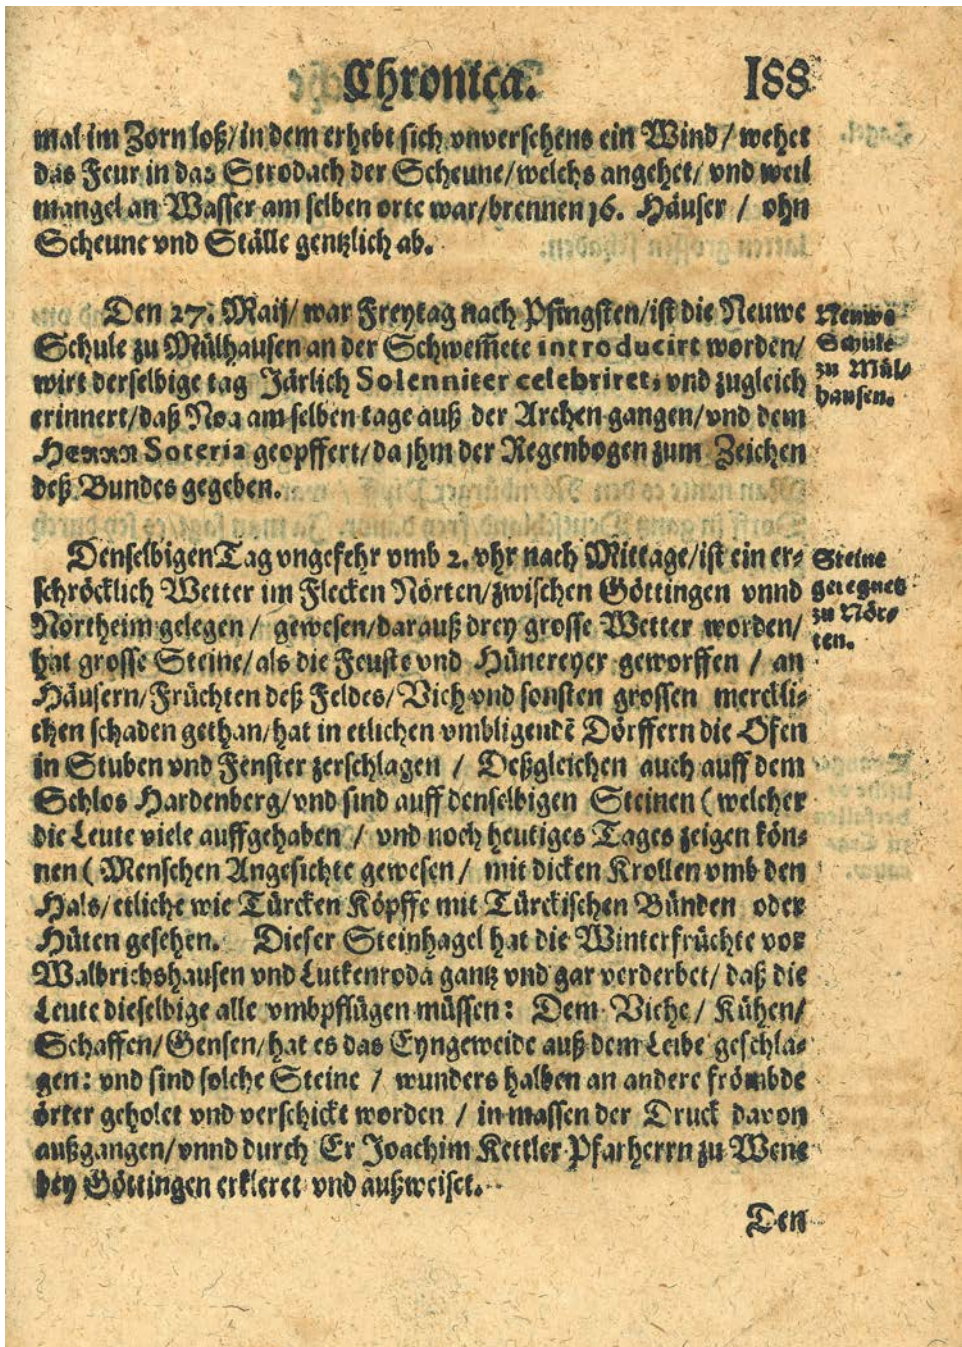 Chronica. 188
mal im Zorn loß/ in dem erhebt sich vnversehens ein Wind/ wehet
das Feur in das Strodach der Scheune/ welchs angehet/ vnd weil
mangel an Wasser am selben orte war/ brennen 16. Häuser / ohn
Scheune vnd Ställe gentzlich ab.
Den 27. Maij/ war Freytag nach Pfingsten/ ist die Neuwe
Schule zu Mülhausen an der Schwem̃ete introducirt worden/
wirt derselbige tag Järlich Solenniter celebriret, vnd zugleich
erinnert/ daß Noa am selben tage auß der Archen gangen/ vnd dem
HERRN Soteria geopffert/ da jhm der Regenbogen zum Zeichen
deß Bundes gegeben.
Neuwe
Schule
zu Mül-
hausen.
Denselbigen Tag vngefehr vmb 2. vhr nach Mittage/ ist ein er-
schröcklich Wetter im Flecken Nörten/ zwischen Göttingen vnnd
Northeim gelegen / gewesen/ darauß drey grosse Wetter worden/
hat grosse Steine/ als die Feuste vnd Hünereyer geworffen / an
Häusern/ Früchten deß Feldes/ Vich vnd sonsten grossen merckli-
chen schaden gethan/ hat in etlichen vmbligendẽ Dörffern die Ofen
in Stuben vnd Fenster zerschlagen / Deßgleichen auch auff dem
Schlos Hardenberg/ vnd sind auff denselbigen Steinen ( welcher
die Leute viele auffgehaben / vnd noch heutiges Tages zeigen kön-
nen ( Menschen Angesichte gewesen / mit dicken Krollen vmb den
Hals/ etliche wie Türcken Köpffe mit Türckischen Bünden oder
Hüten gesehen. Dieser Steinhagel hat die Winterfrüchte vor
Walbrichshausen vnd Lutkenroda gantz vnd gar verderbet/ daß die
Leute dieselbige alle vmbpflügen müssen: Dem Viehe / Kühen/
Schaffen/ Gensen/ hat es das Eyngeweide auß dem Leibe geschla-
gen: vnd sind solche Steine / wunders halben an andere frömbde
örter geholet vnd verschickt worden / in massen der Druck davon
außgangen/ vnnd durch Er Joachim Kettler Pfarherrn zu Wene
bey Göttingen erkleret vnd außweiset.
Steine
geregnet
zu Nör-
ten.
Den